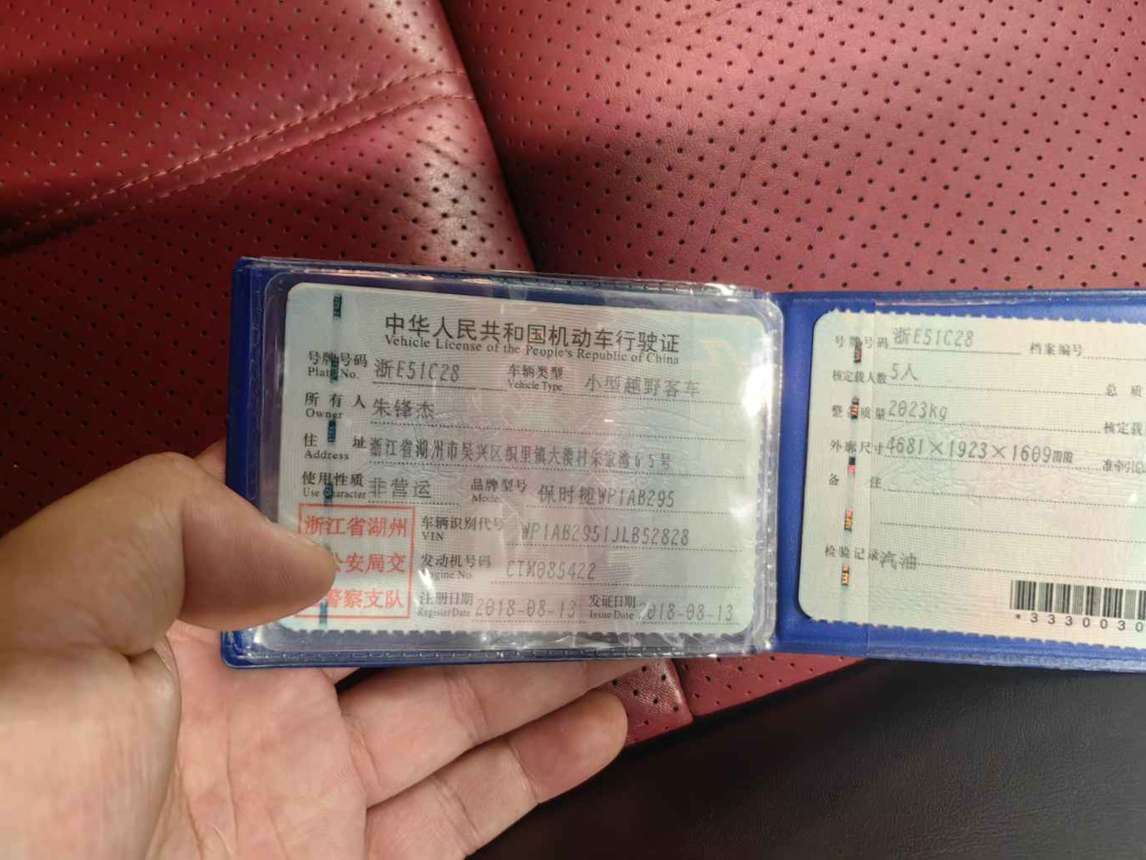 中华人民共和国机动车行驶证
Vehicle License of the People's Republic of China
号牌号码 浙E51C28 车辆类型 小型越野客车
Plate No. Vehicle Type
所有人 朱锋杰
Owner
住址 浙江省湖州市吴兴区织里镇大港村朱家湾65号
Address
使用性质 非营运 品牌型号 保时捷WP1AB295
Use Character Model
浙江省湖州
公安局交
警察支队
车辆识别代号 WP1AB2951JLB52828
VIN
发动机号码
Engine No.
注册日期 2018-08-13 发证日期 2018-08-13
Register Date Issue Date
号牌号码 浙E51C28 档案编号
核定载人数 5人 总质
整备质量 2023kg 核定载
外廓尺寸 4681×1923×1609mm 准牵引总
备注
检验记录 汽油
*3330030